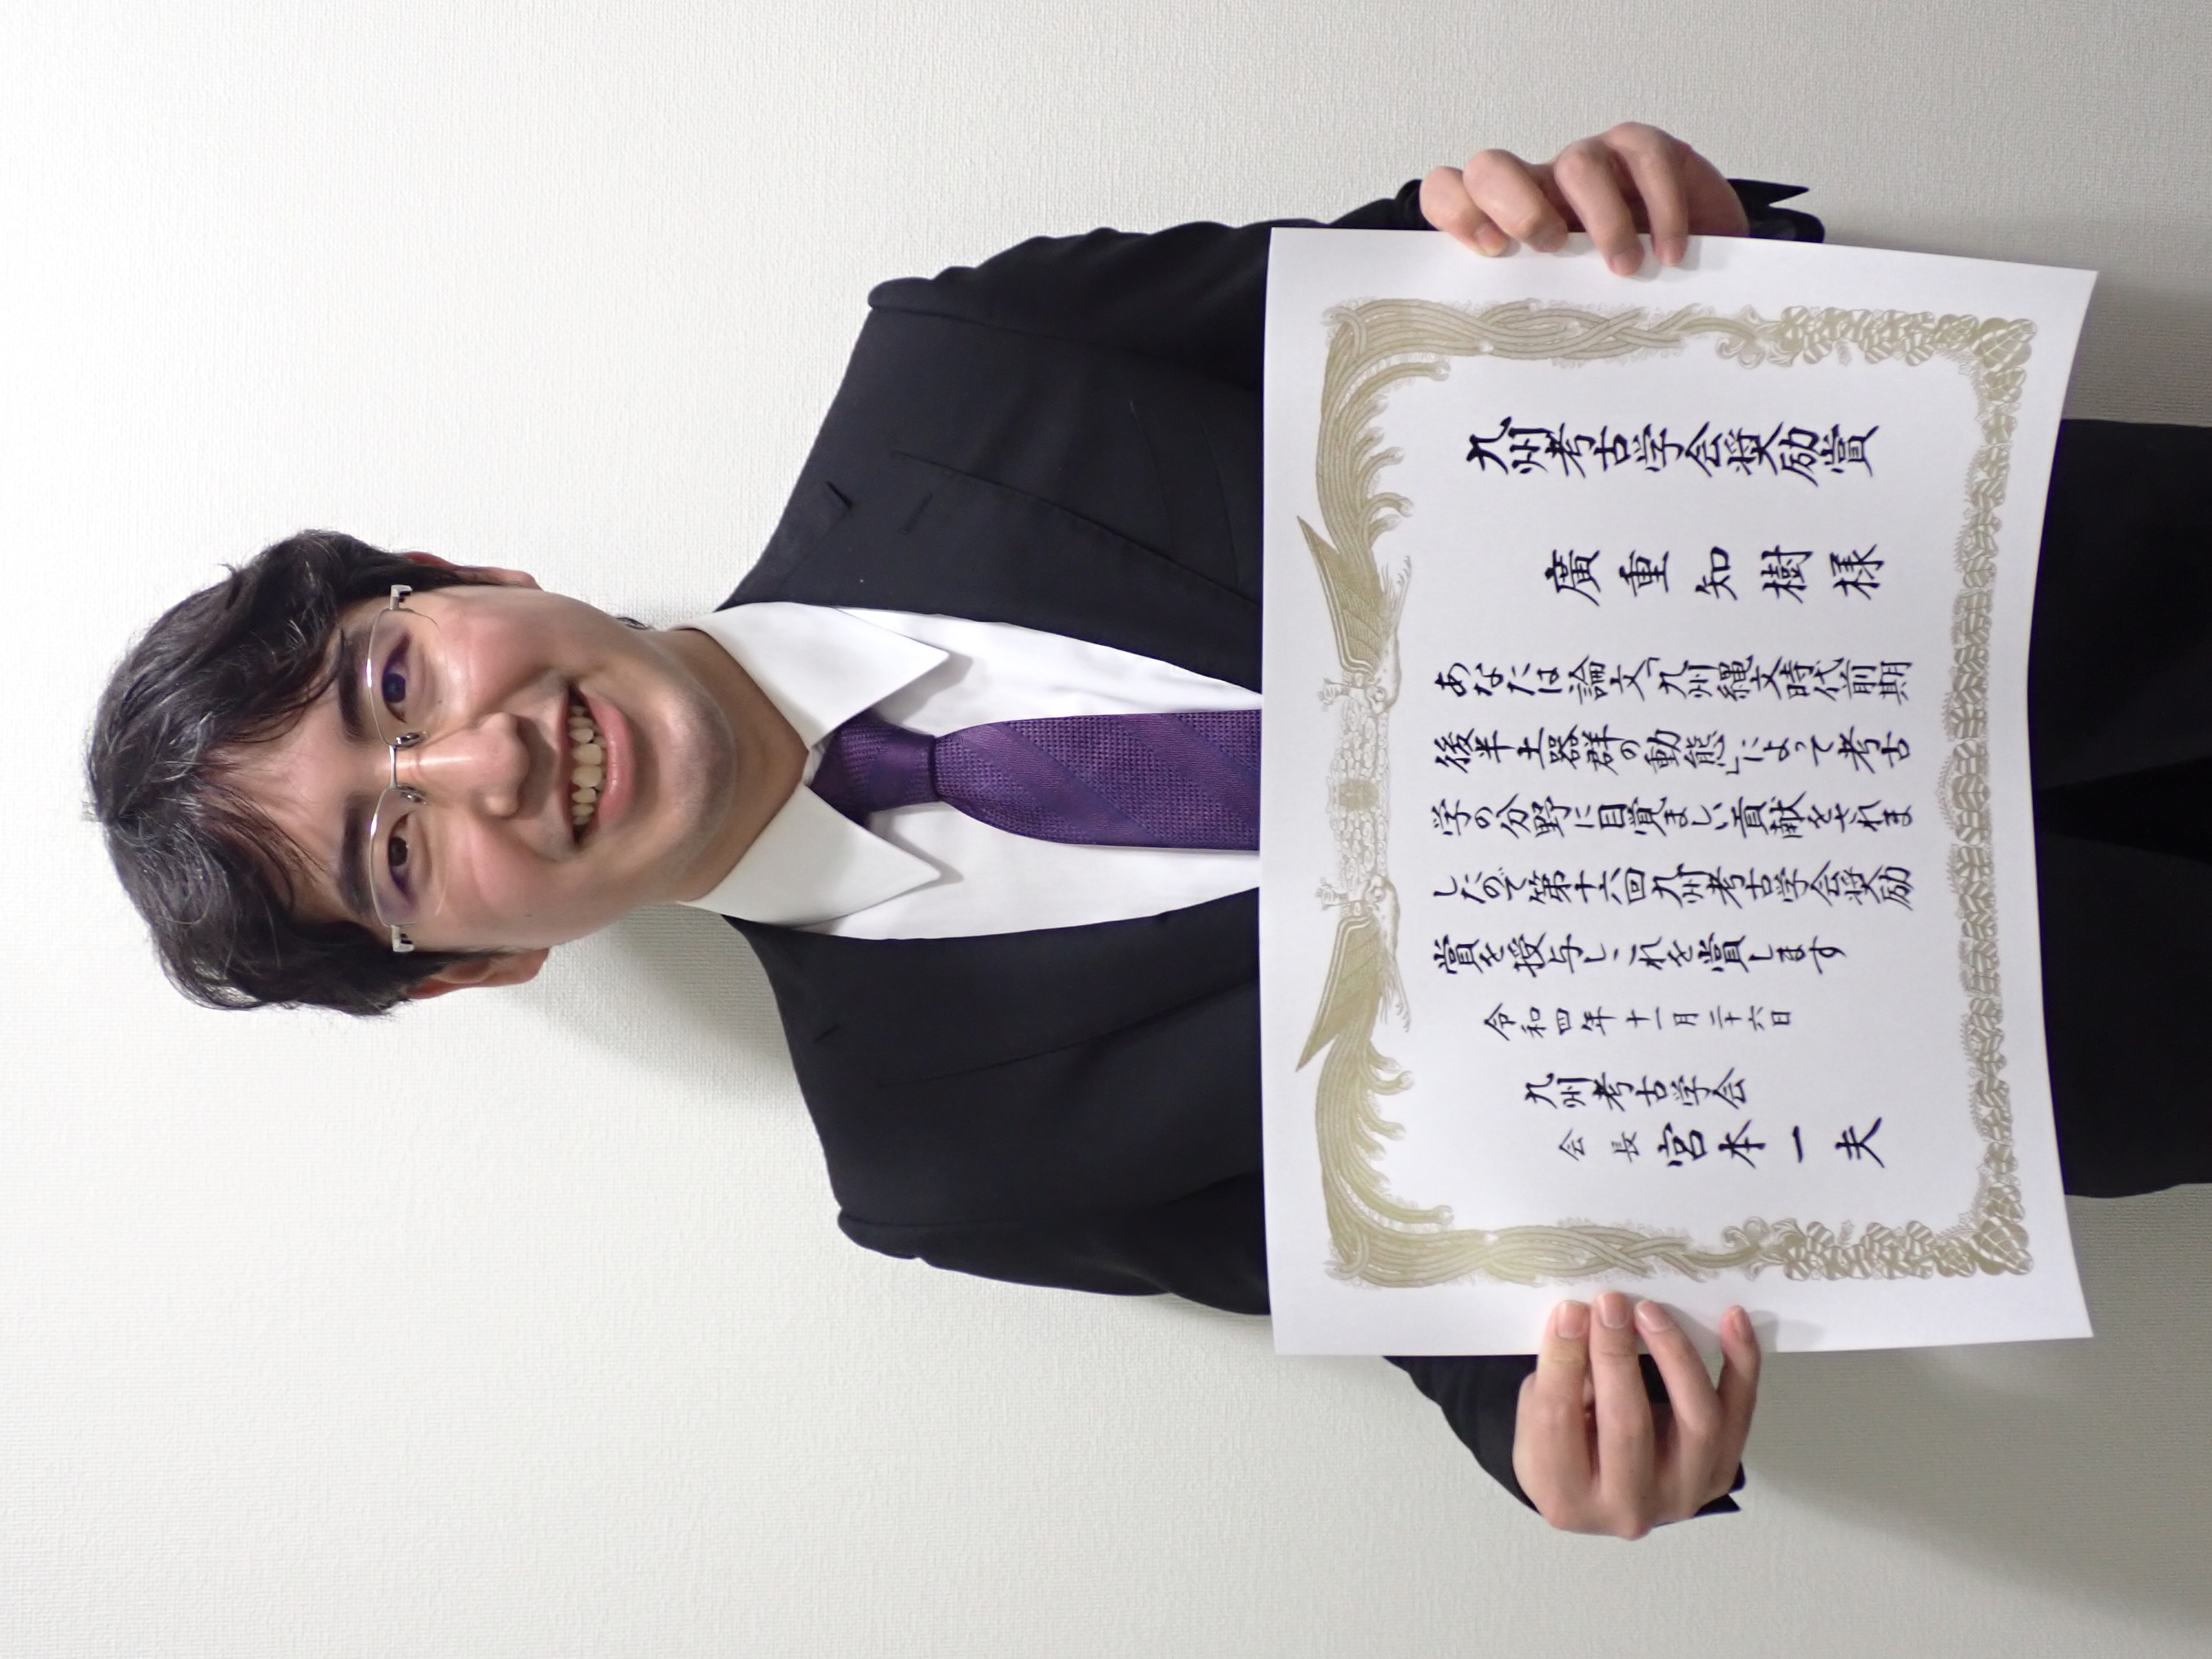 九州考古学会奨励賞
廣重知樹様
あなたは論文「九州縄文時代前期
後半土器群の動態」によって考古
学の分野に目覚ましい貢献をされま
したので第十六回九州考古学会奨励
賞を授与しこれを賞します
令和四年十一月二十六日
九州考古学会
会長 宮本一夫